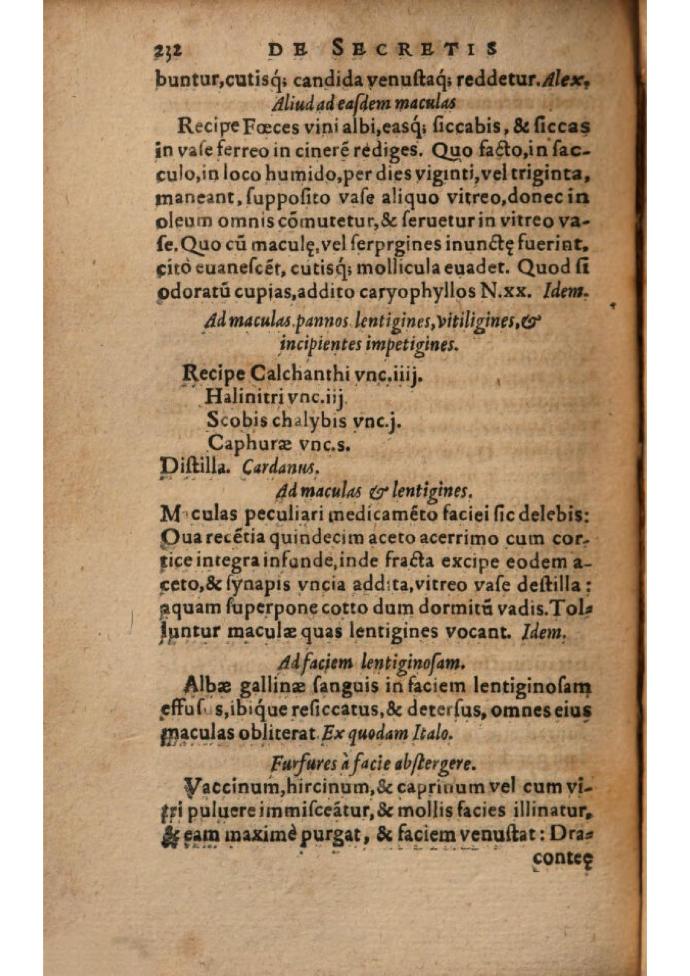 232 DE SECRETIS
buntur,cutisq́; candida venuſtaq́; reddetur. Alex.
Aliud ad eaſdem maculas
Recipe Fœces vini albi,easq́; ſiccabis, & ſiccas
in vaſe ferreo in cinerē rediges. Quo facto,in ſac-
culo,in loco humido,per dies viginti,vel triginta,
maneant, ſuppoſito vaſe aliquo vitreo,donec in
oleum omnis cōmutetur,& ſeruetur in vitreo va-
ſe. Quo cū maculę,vel ſerprgines inunctę fuerint,
citò euaneſcēt, cutisq́; mollicula euadet. Quod ſi
odoratū cupias,addito caryophyllos N.xx. Idem.
Ad maculas pannos lentigines,vitiligines,&
incipientes impetigines.
Recipe Calchanthi vnc.iiij.
Halinitri vnc.iij.
Scobis chalybis vnc.j.
Caphuræ vnc.s.
Diſtilla. Cardanus.
Ad maculas & lentigines.
Mculas peculiari medicamēto faciei ſic delebis:
Oua recētia quindecim aceto acerrimo cum cor-
tice integra infunde,inde fracta excipe eodem a-
ceto,& ſynapis vncia addita,vitreo vaſe deſtilla:
aquam ſuperpone cotto dum dormitū vadis. Tol-
luntur maculæ quas lentigines vocant. Idem.
Ad faciem lentiginoſam.
Albæ gallinæ ſanguis in faciem lentiginoſam
effuſus,ibique reſiccatus,& deterſus, omnes eius
maculas obliterat. Ex quodam Italo.
Furfures à facie abſtergere.
Vaccinum,hircinum,& caprinum vel cum vi-
tri puluere immiſceātur,& mollis facies illinatur,
& eam maximè purgat, & faciem venuſtat: Dra-
conteę